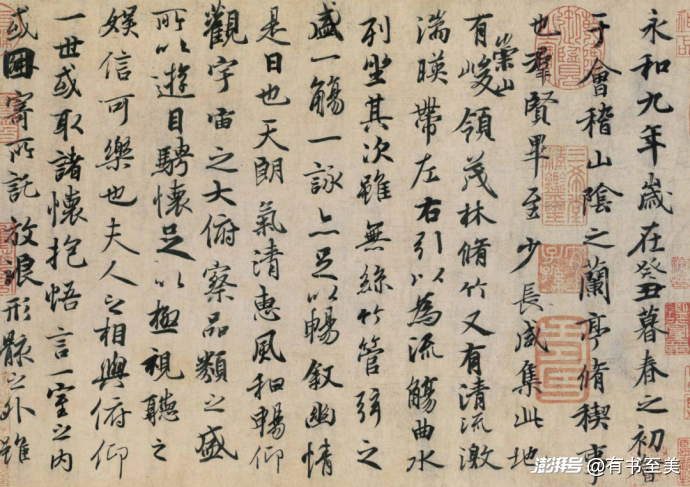 永和九年歲在癸丑暮春之初會
于會稽山陰之蘭亭脩稧事
也羣賢畢至少長咸集此地
有崇山峻領茂林脩竹又有清流激
湍暎帶左右引以為流觴曲水
列坐其次雖無絲竹管弦之
盛一觴一詠亦足以暢叙幽情
是日也天朗氣清惠風和暢仰
觀宇宙之大俯察品類之盛
所以遊目騁懷足以極視聽之
娛信可樂也夫人之相與俯仰
一世或取諸懷抱悟言一室之內
或因寄所託放浪形骸之外雖
澎湃号 @有书至美